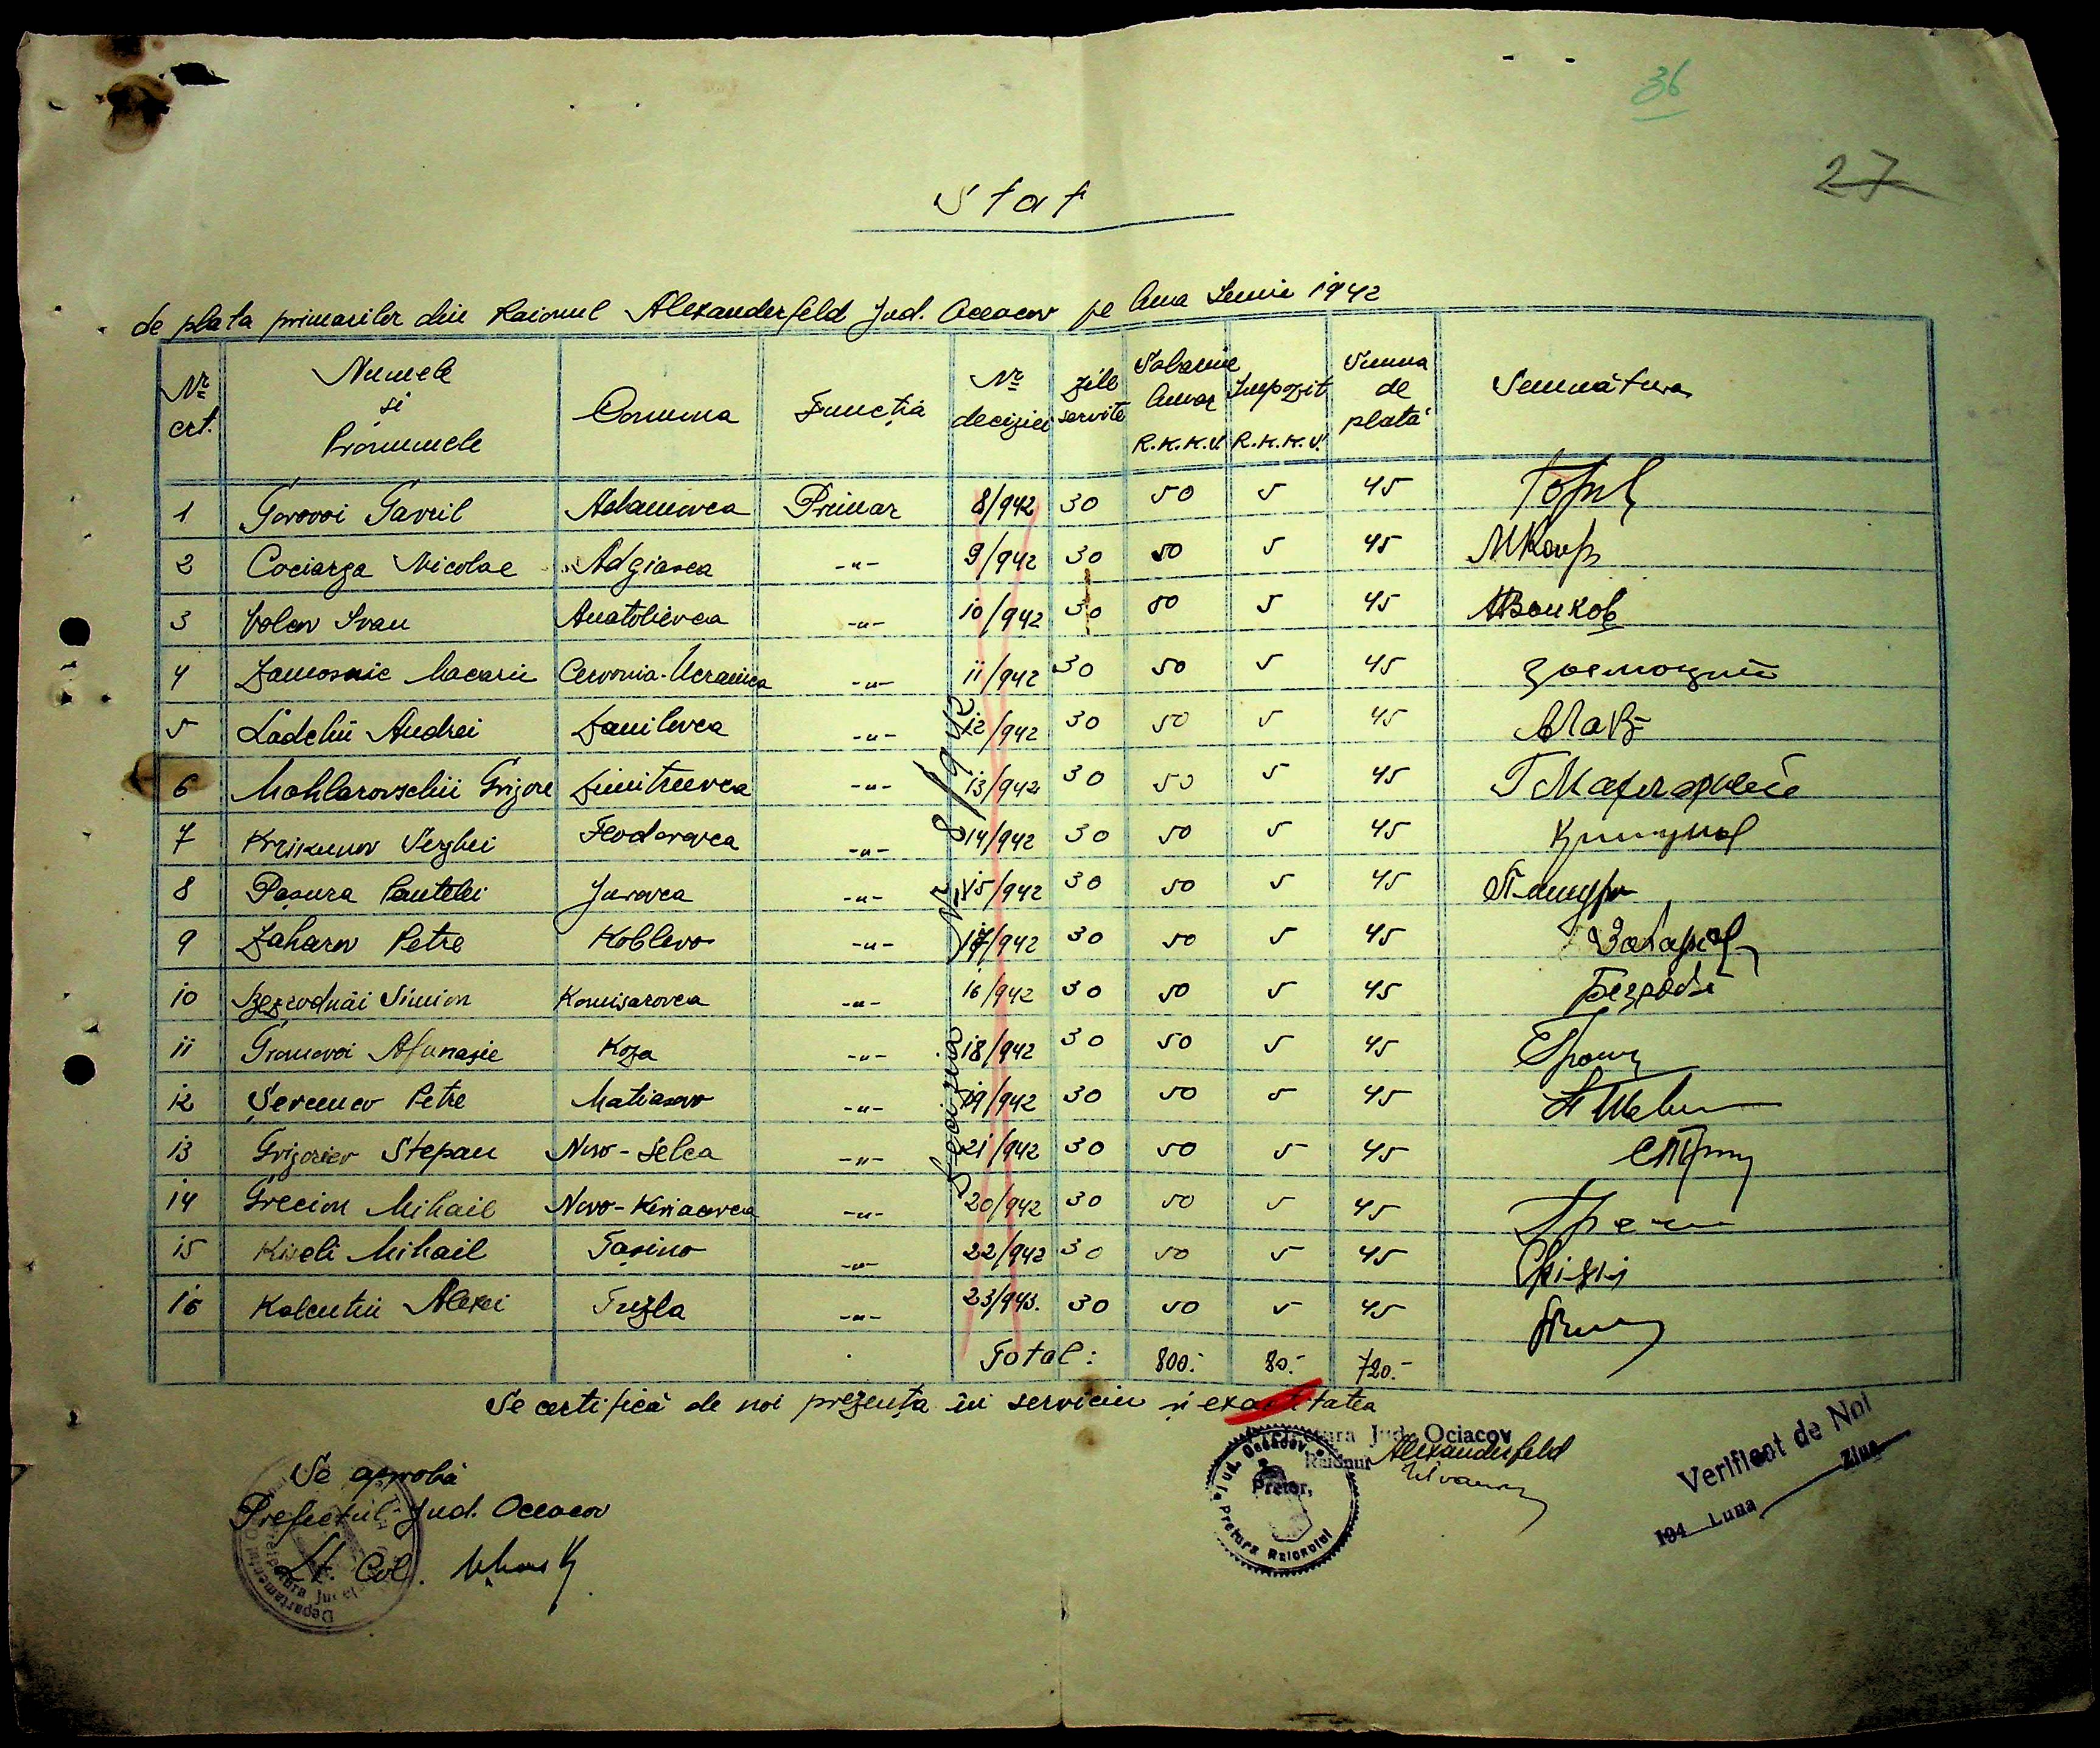 36
27
Stat
de plata primarilor din Raionul Alexanderfeld Jud. Oceacov pe luna Iunie 1942
Nr. crt. Numele si Pronumele Comuna Funcția Nr. deciziei zile servite Salariu lunar R.K.K.V. Impozit R.K.K.V. Suma de plată Semnătura
1 Gorovoi Gavril Adamovca Primar 8/942 30 50 5 45
2 Cociarga Nicolae Adgiasca -"- 9/942 30 50 5 45
3 Volcov Ivan Anatolievca -"- 10/942 30 50 5 45 Волков
4 Zamosnic Macarii Cervonia-Ucrainca -"- 11/942 30 50 5 45
5 Ladchii Andrei Danilovca -"- 12/942 30 50 5 45
6 Mohlarovschii Grigore Dimitrievca -"- 13/942 30 50 5 45
7 Krikunov Serghei Feodorovca -"- 14/942 30 50 5 45
8 Pașura Pantelei Jurovca -"- 15/942 30 50 5 45
9 Zaharov Petre Koblevo -"- 17/942 30 50 5 45
10 Bezrodnâi Simion Komisarovca -"- 16/942 30 50 5 45
11 Gromovoi Afanasie Koza -"- 18/942 30 50 5 45
12 Petre Matiasovo -"- 19/942 30 50 5 45
13 Grigoriev Stepan Novo-Selca -"- 21/942 30 50 5 45
14 Grecim Mihail -"- 20/942 30 50 5 45
15 Kiseli Mihail Tașino -"- 22/942 30 50 5 45
16 Kolentii Alexei Tuzla -"- 23/943. 30 50 5 45
Decizia Nr. 8/1942
Total: 800.- 80.- 720.-
Se certifică de noi prezența în serviciu și exactitatea
Se aprobă
Prefectul Jud. Oceacov
Lt. Col.
Pretura Jud. Ociacov
Raionul Alexanderfeld
Pretor,
Jud. Oceacov
Pretura Raionului
Verificat de Noi
194 Luna Ziua